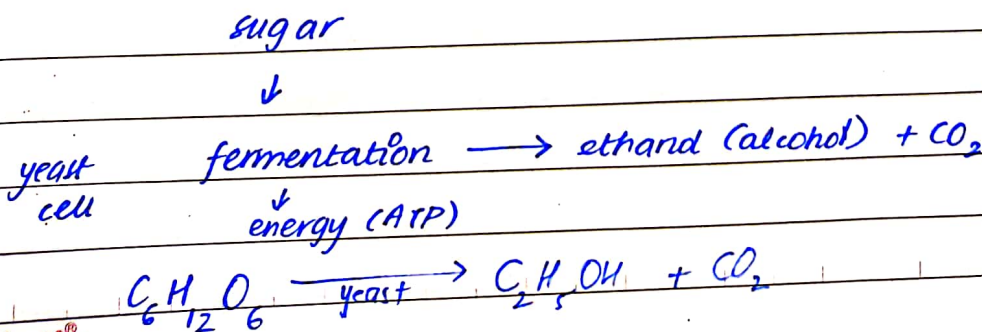 sugar
↓
yeast cell fermentation → ethanol (alcohol) + CO₂
↓
energy (ATP)
C₆H₁₂O₆ —yeast→ C₂H₅OH + CO₂